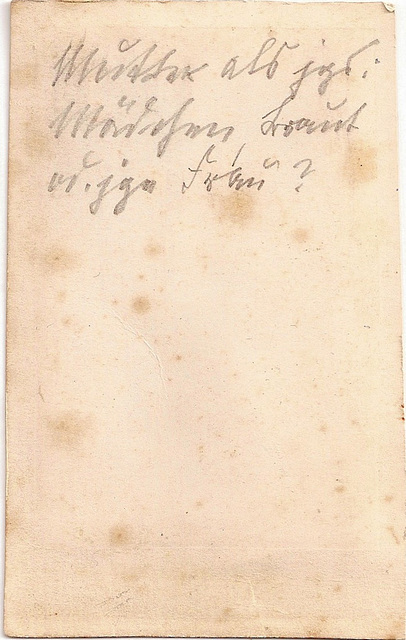 Mutter als jgs.
Mädchen, Braut
od. jge Frau?